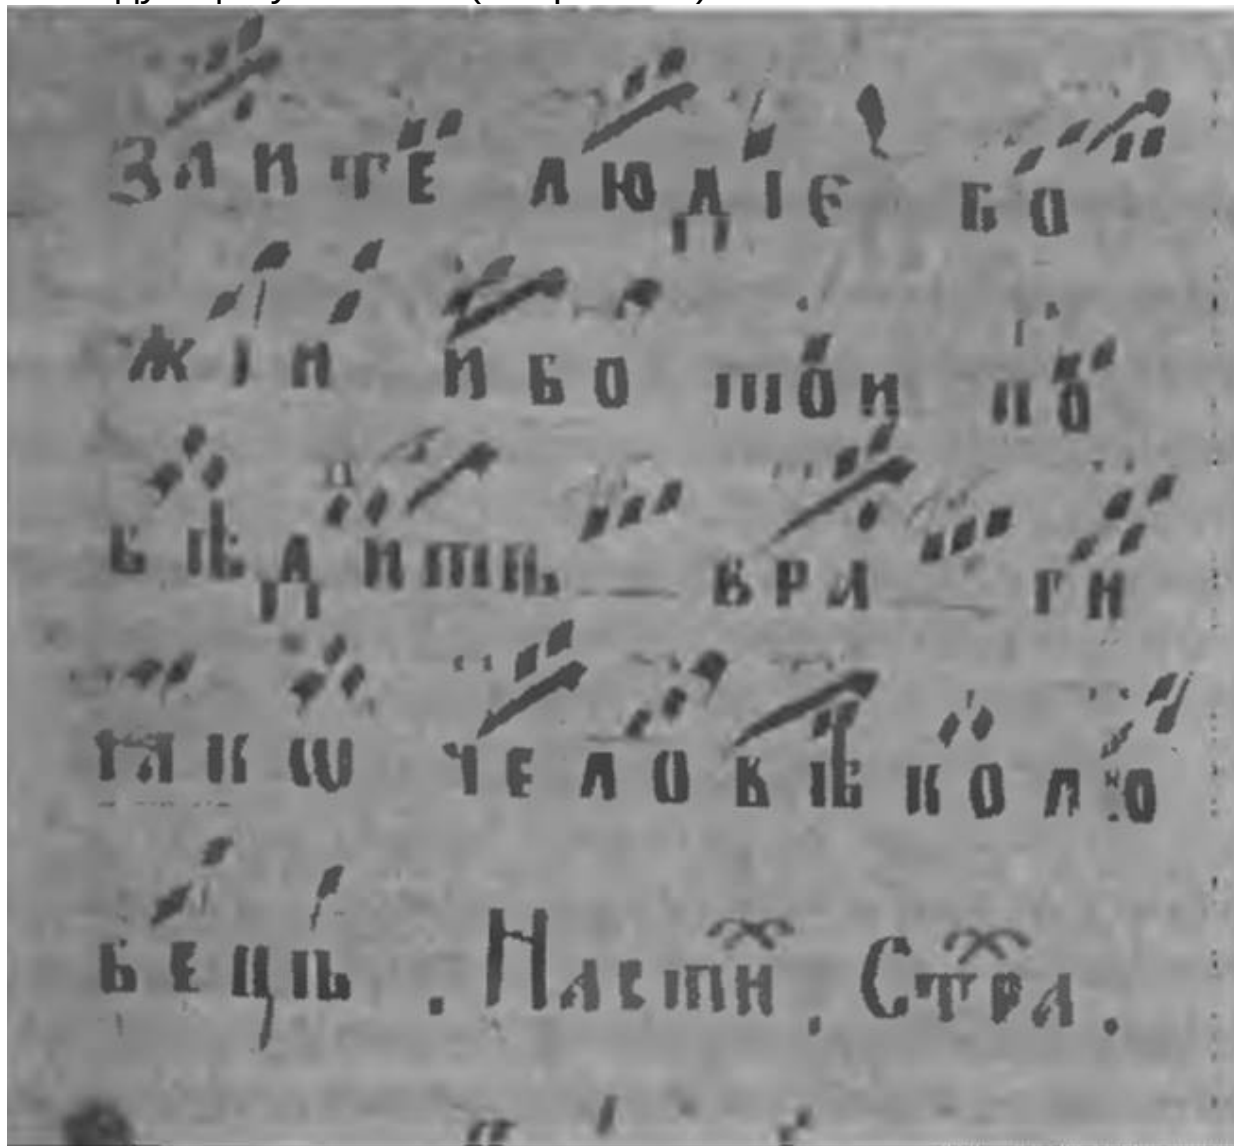 злите людіе бо
жіи ибо шои по
бѣдитъ — вра — ги
ꙗкѡ человѣколю
бецъ . Настй , Стра .